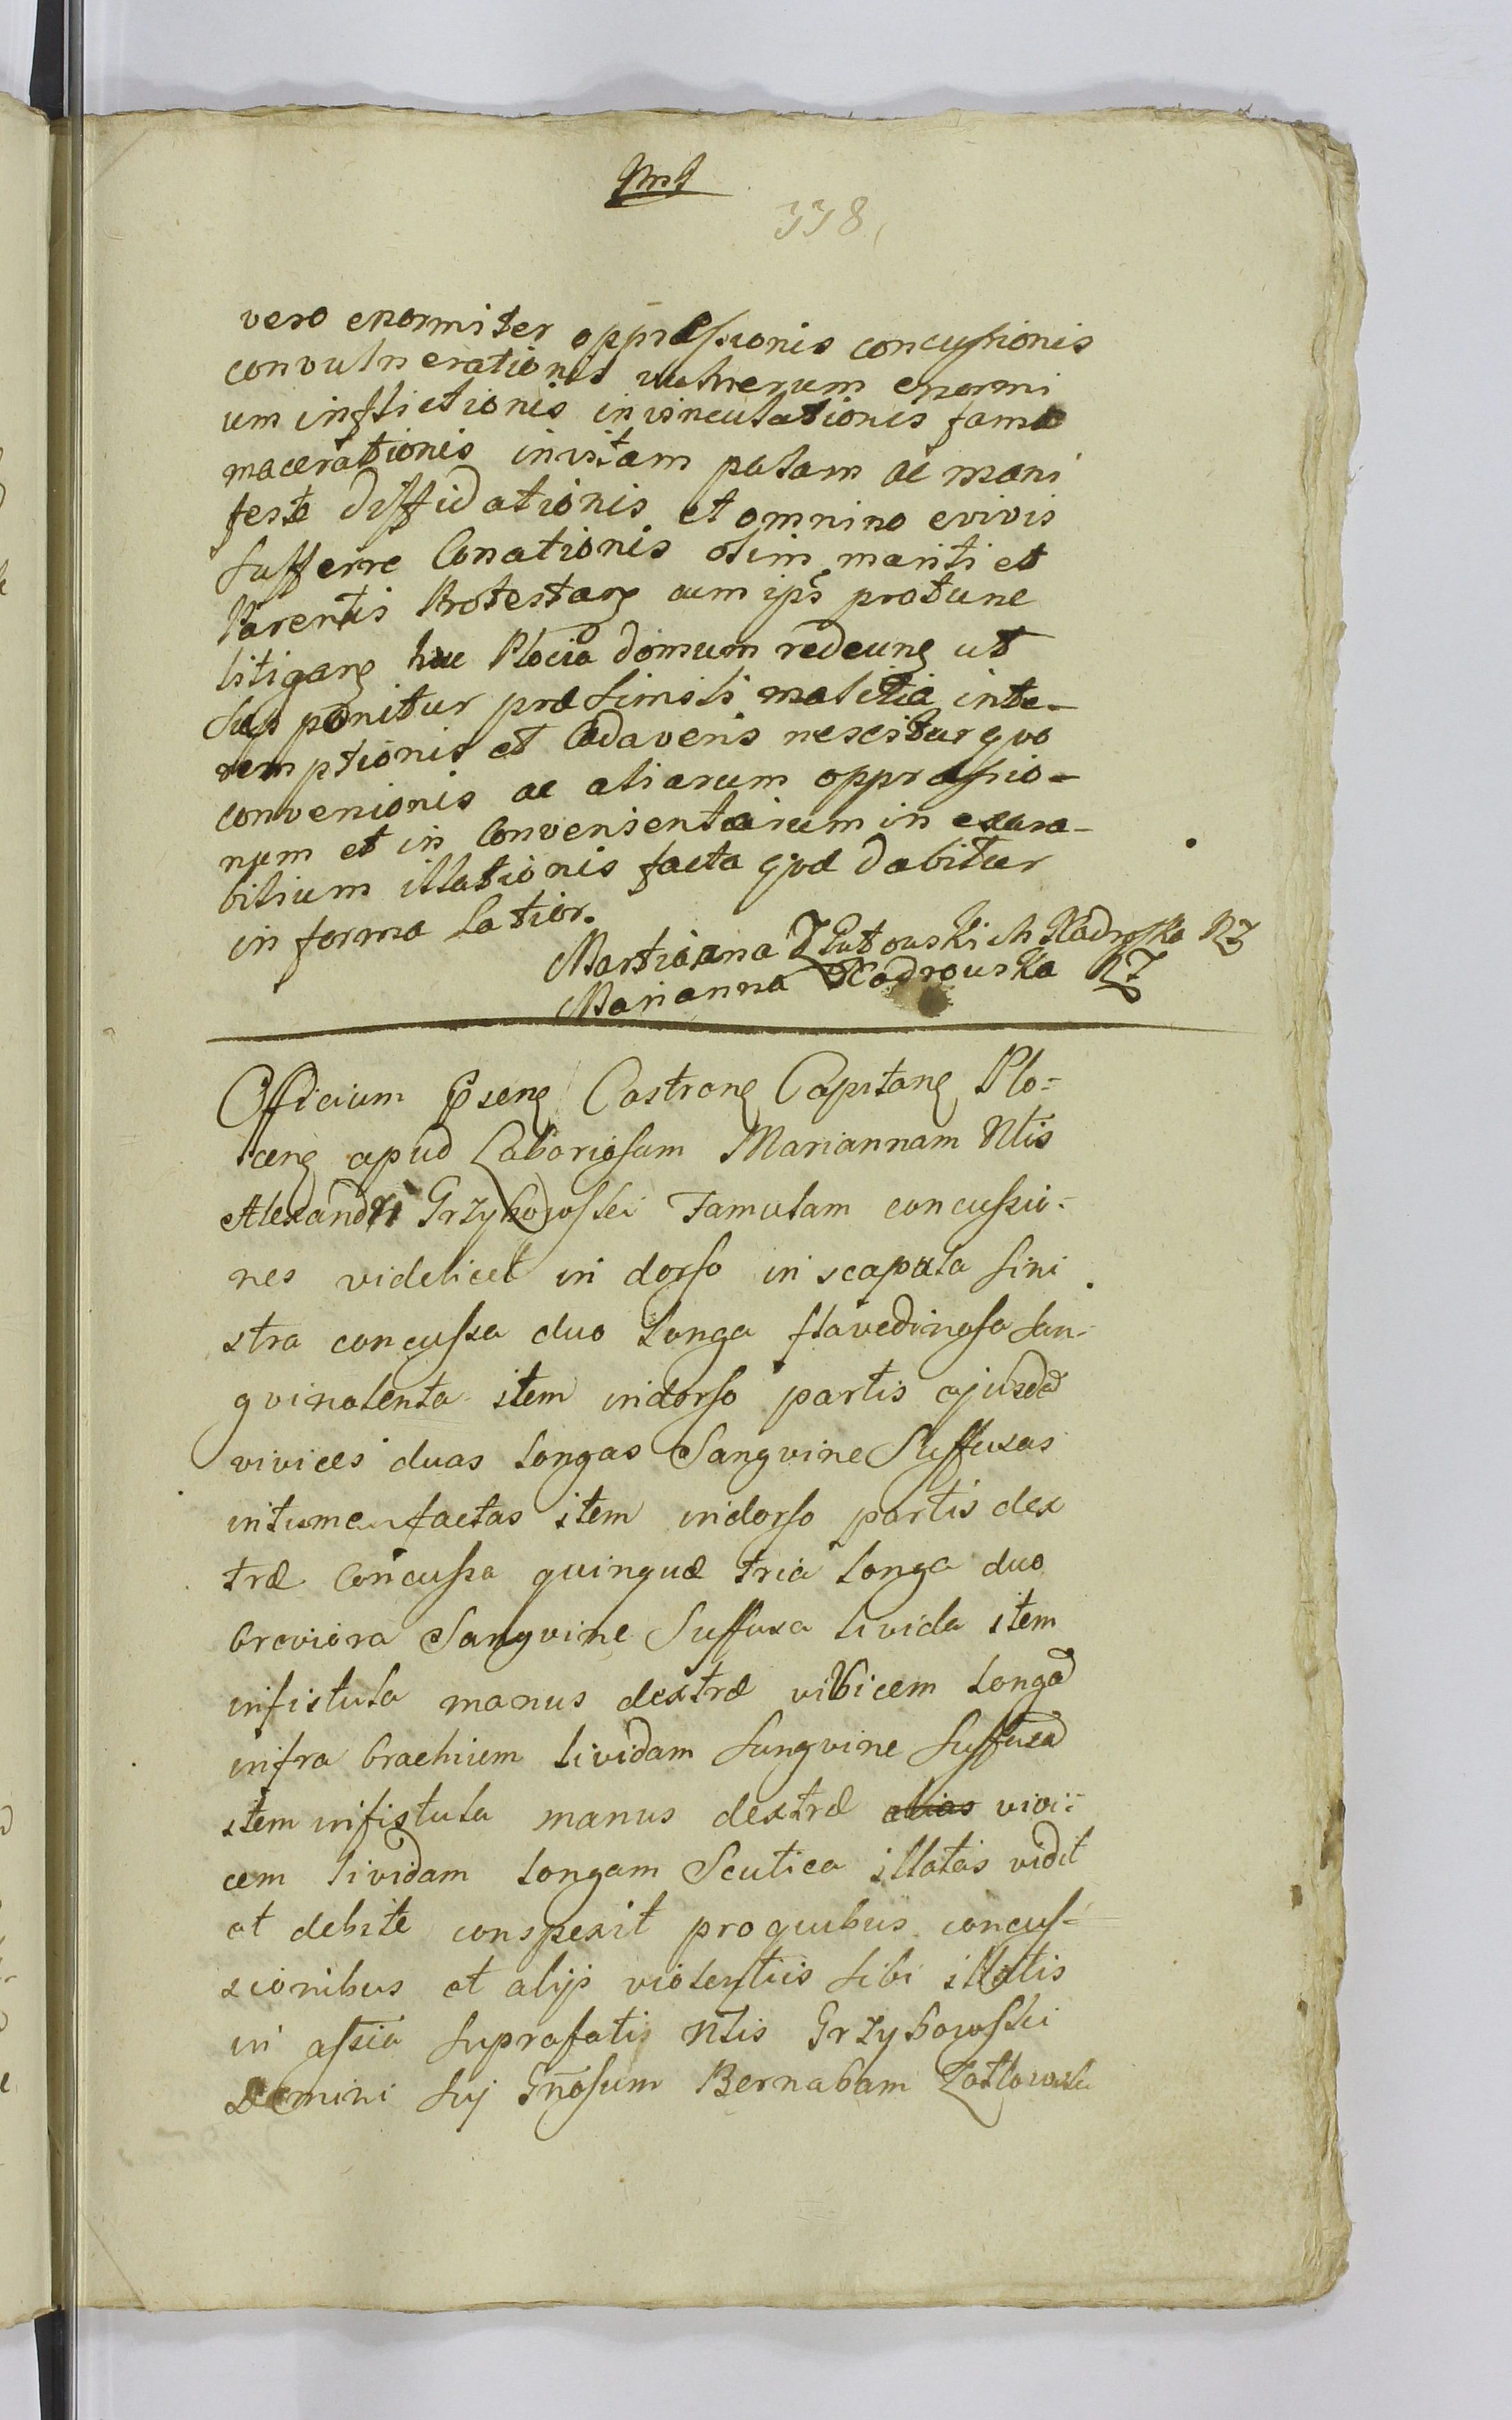 338
vero enormiter oppræssionis concussionis
convulnerationis vulnerum enormi
um inflictionis invinculationis fame
macerationis invitam palam ac mani
feste diffidationis et omnino evivis
sufferre Conationis olim mariti et
Parentis Protestanȝ cum ipś protunc
litiganȝ hac Plocia domum redeunȝ ut
supponitur præsimili malitia inte-
remptionis et Cadaveris nescitur quo
convenionis ac aliarum oppræssio-
num et in Convenientiarum in exara-
bilium illationis facta qvæ dabitur
in forma latior.
Martianna Zlutouskich Nadroska RZ
Marianna Nadrouska RZ
Officium Pṡenȝ Castrenȝ Capitanȝ Plo=
cenȝ apud Laboriosam Mariannam Ntis
Alexandri Grzybowskei Famulam concussio=
nes videlicet in dorso in scapula sini
stra concussa duo longa flavedinosa san-
gvinolenta item indorso partis ejusdē
vivices duas longas Sangvine Suffusas
intumenfactas item indorso partis dex
træ Concussa quinquæ tria longa duo
breviora Sangvine Suffusa livida item
infistula manus dextræ vibicem longā
infra brachium lividam sangvine suffusā
item infistula manus dextræ alias vivi=
cem lividam longam Scutica illatas vidit
et debite conspexit proquibus concus=
sionibus et alijs violentiis sibi illatis
in assia suprafati Ntis Grzybowskei
Domini suj Gnosum Bernabam